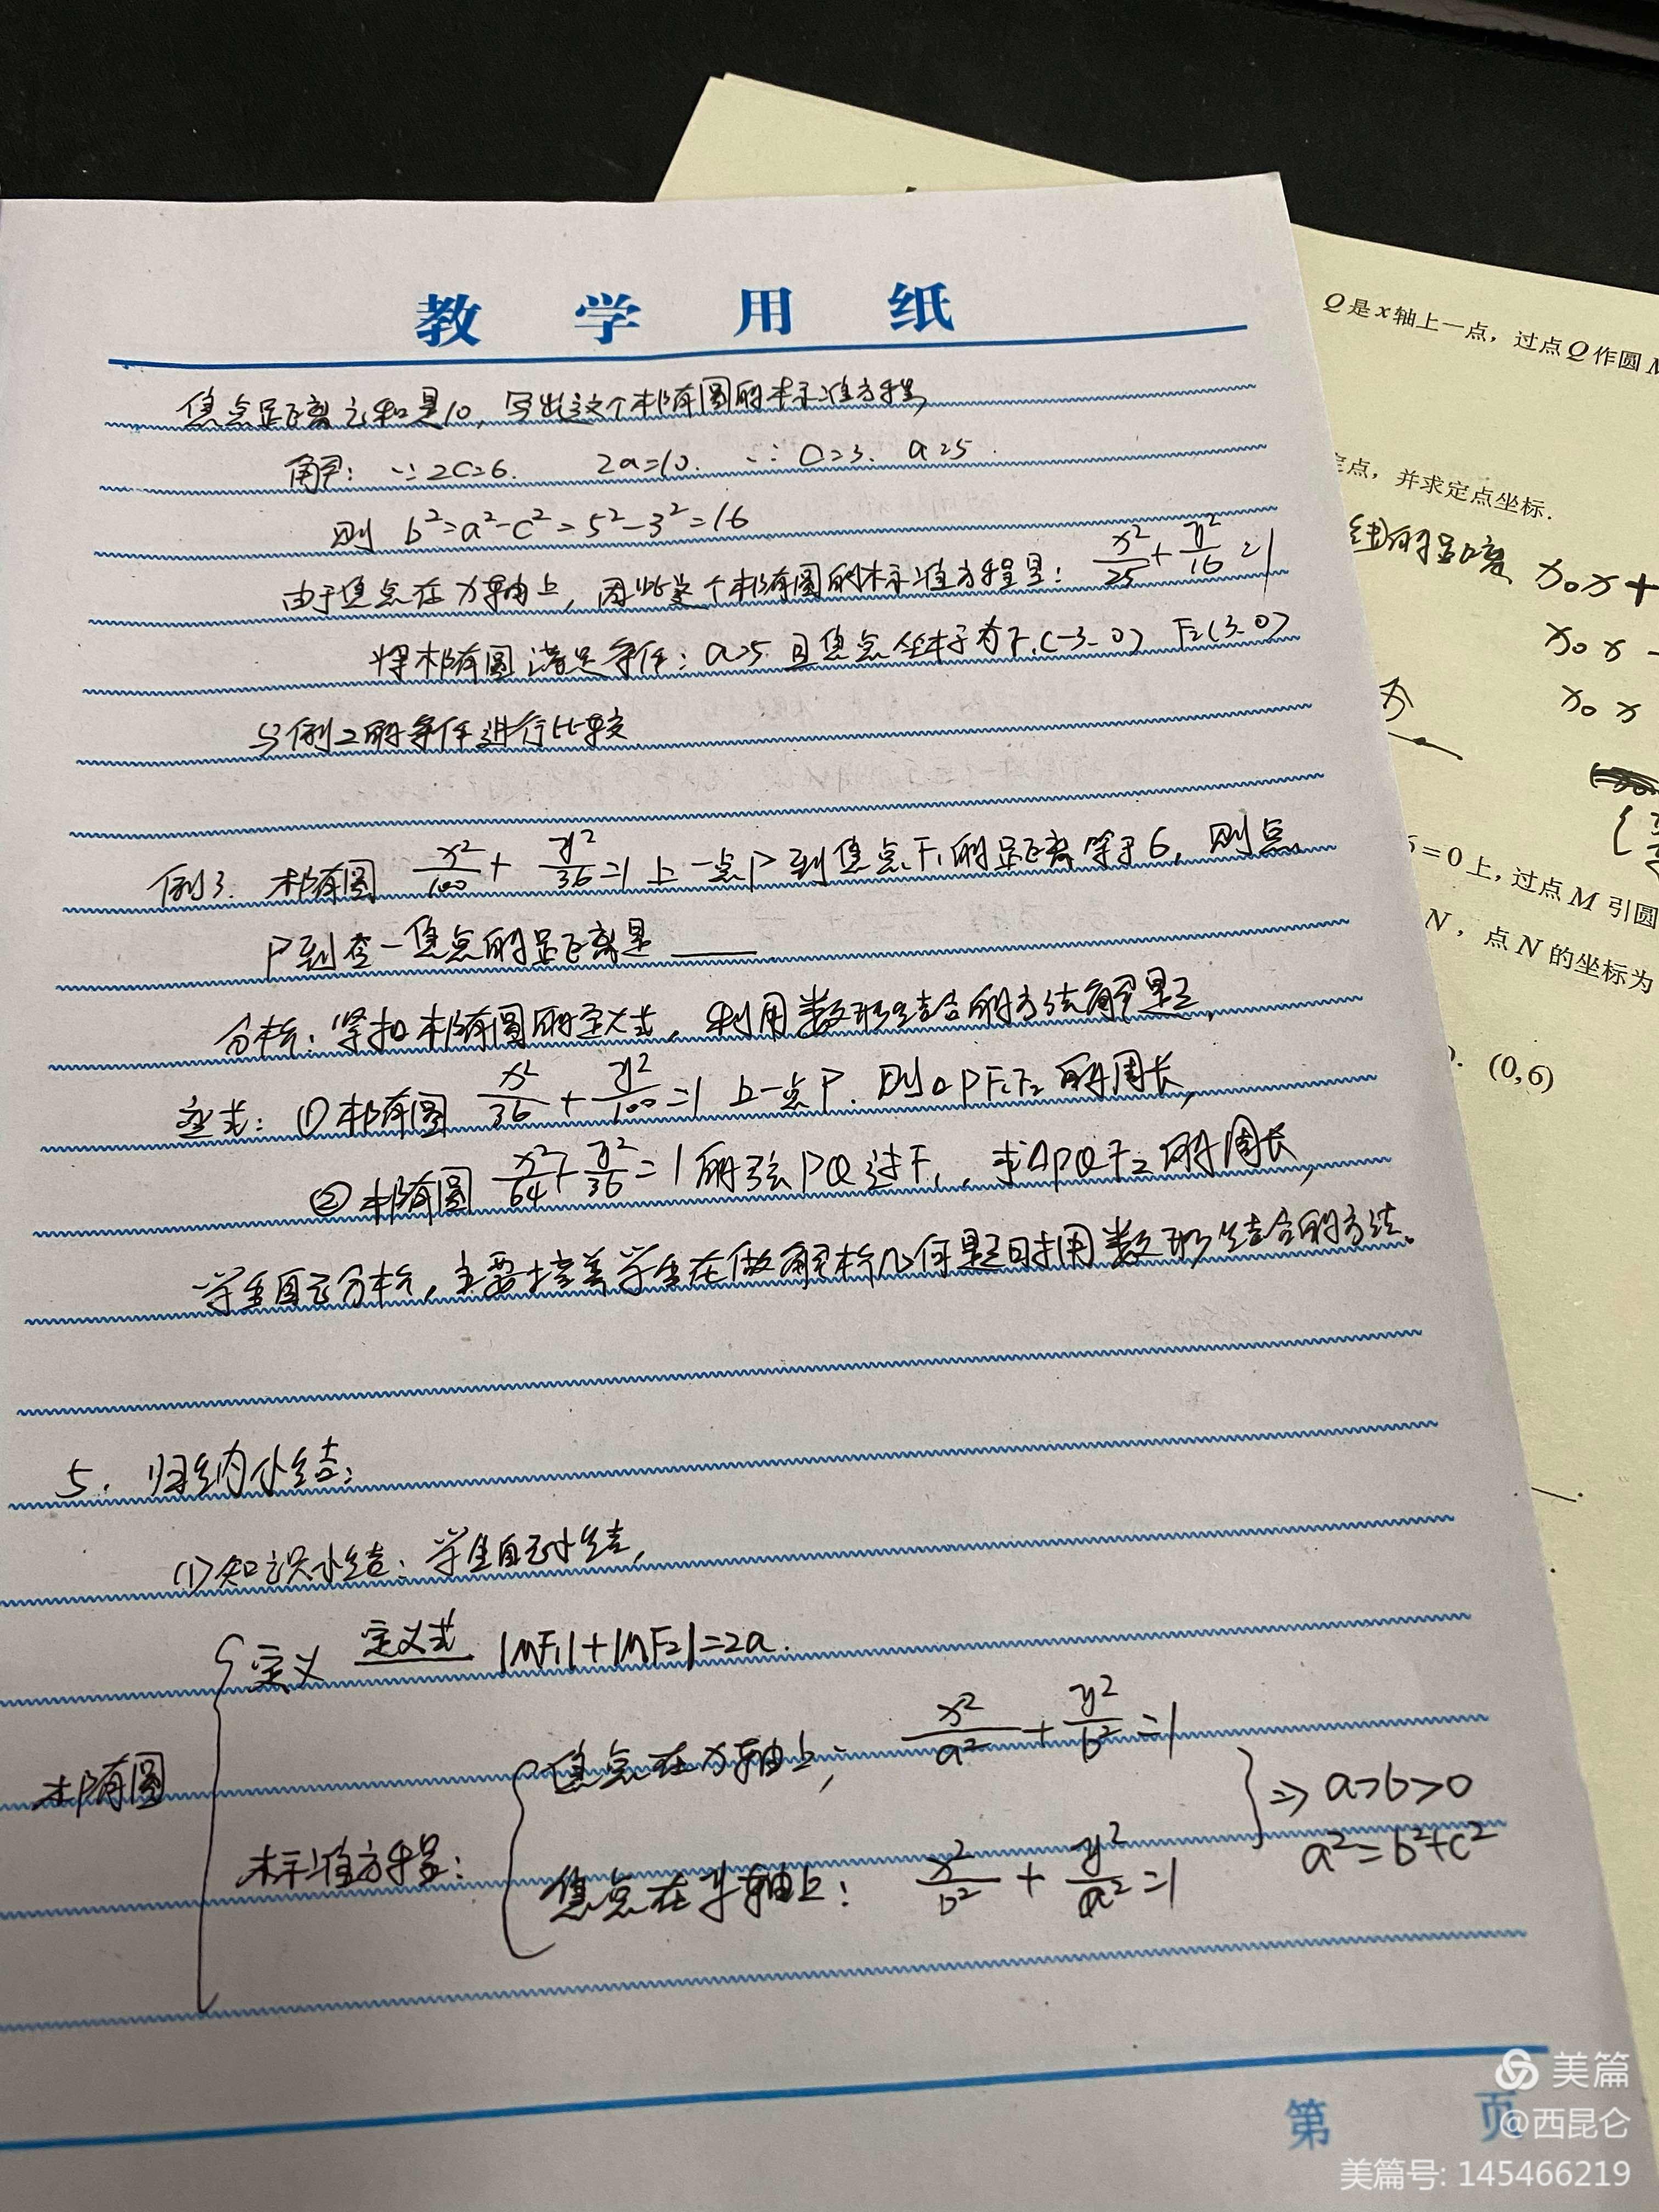 教 学 用 纸
焦点距离之和是10，写出这个椭圆的标准方程，
解：∵2c=6. 2a=10. ∴ c=3. a=5.
则 b²=a²-c²=5²-3²=16
由于焦点在x轴上，因此这个椭圆的标准方程是：x²/25+y²/16=1
将椭圆满足条件：a=5 且焦点坐标为F₁(-3.0) F₂(3.0)
与例2的条件进行比较
例3. 椭圆 x²/100+y²/36=1上一点P到焦点F₁的距离等于6，则点
P到另一焦点的距离是____.
分析：紧扣椭圆的定义式，利用数形结合的方法解题，
变式：①椭圆 x²/36+y²/100=1 上一点P. 则△PF₁F₂的周长，
②椭圆 x²/64+y²/36=1的弦PQ过F₁，求△PQF₂的周长，
学生自己分析，主要培养学生在做解析几何题目时用数形结合的方法。
5. 归纳小结：
(1)知识小结：学生自己小结，
定义 定义式 |MF₁|+|MF₂|=2a.
椭圆
焦点在x轴上； x²/a²+y²/b²=1
标准方程：
焦点在y轴上： x²/b²+y²/a²=1
⇒ a>b>0
a²=b²+c²
第 页
Q是x轴上一点，过点Q作圆M
定点，并求定点坐标.
线的距离 x₀x+
x₀x-
x₀x
=0上，过点M引圆
N，点N的坐标为
(0,6)
美篇
@西昆仑
美篇号: 145466219